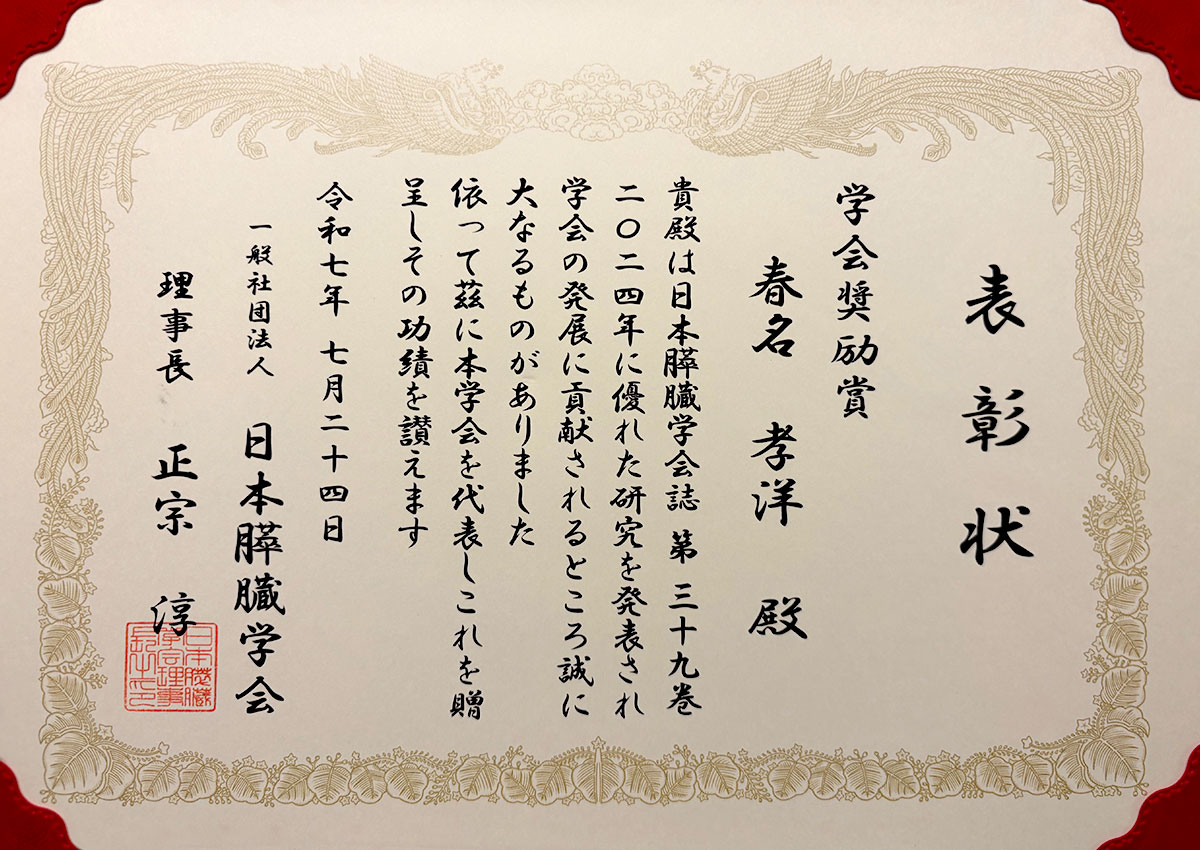 表彰状
学会奨励賞
春名 孝洋 殿
貴殿は日本膵臓学会誌 第三十九巻
二〇二四年に優れた研究を発表され
学会の発展に貢献されるところ誠に
大なるものがありました
依って茲に本学会を代表しこれを贈
呈しその功績を讃えます
令和七年 七月二十四日
一般社団法人 日本膵臓学会
理事長 正宗 淳
日本膵臓
学会理事
長之印